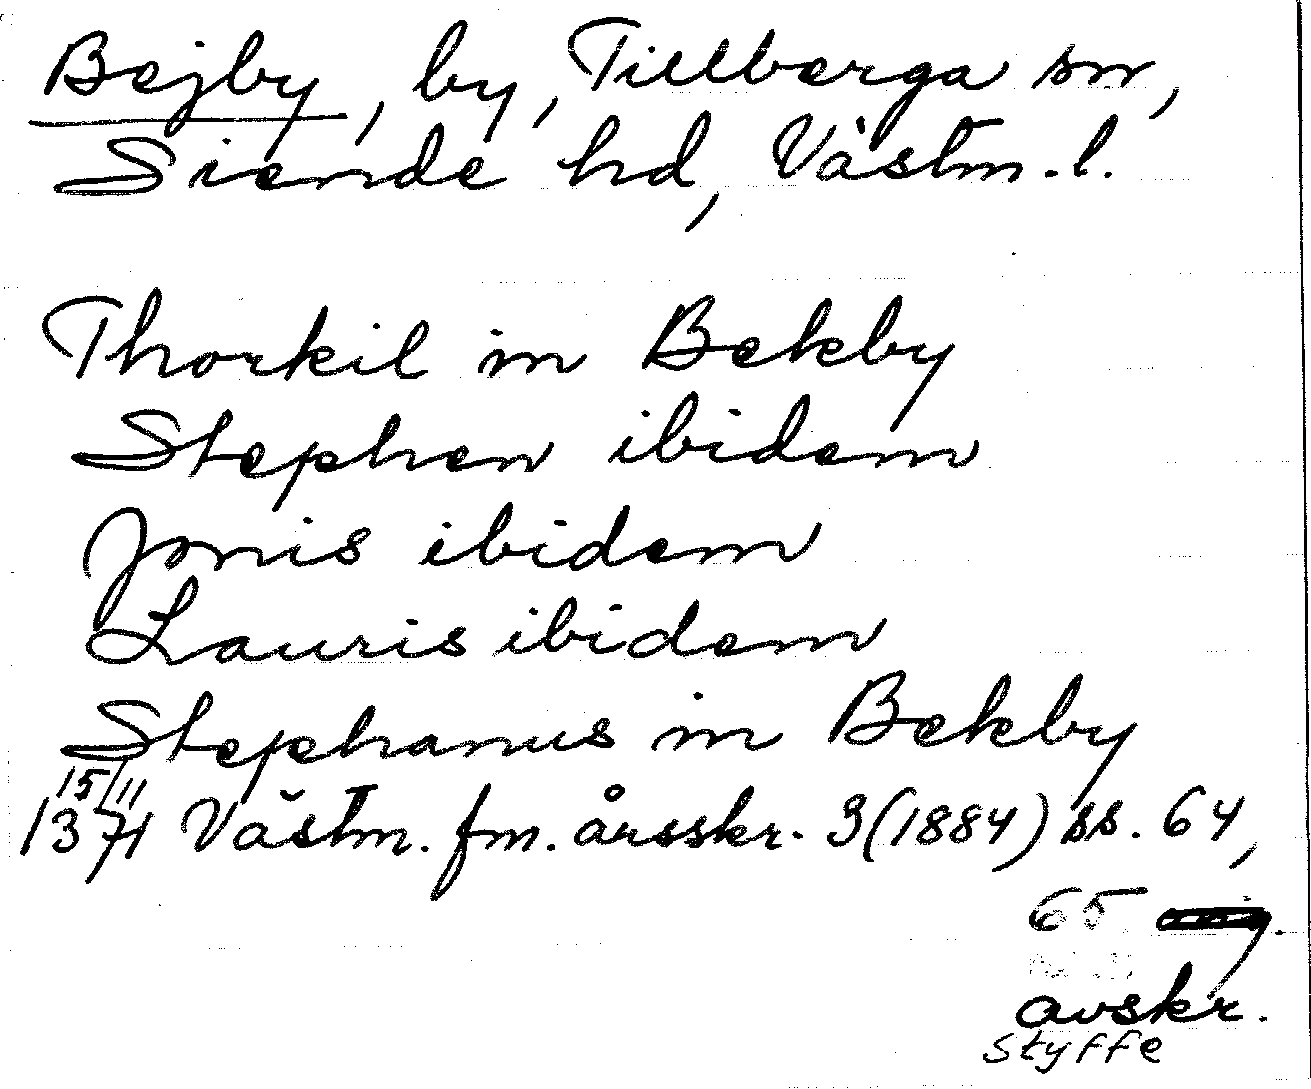 Bejby, by, Tillberga sn,
Siende hd, Västm.l.
Thorkil in Bekby
Stephen ibidem
Jonis ibidem
Lauris ibidem
Stephanus in Bekby
15/11
1371 Västm. fm. årsskr. 3(1884) ss. 64,
65
avskr.
Styffe